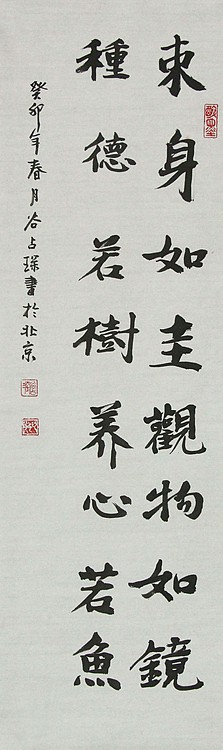 束身如圭觀物如鏡
種德若樹养心若魚
癸卯年春月谷占琛書於北京